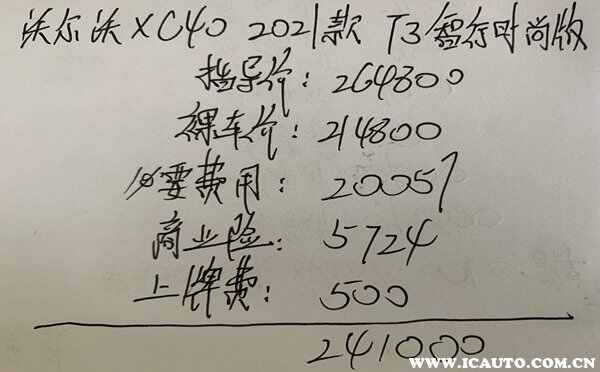 沃尔沃XC40 2021款 T3智行时尚版
指导价: 264800
裸车价: 214800
必要费用: 20051
商业险: 5724
上牌费: 500
241000
WWW.ICAUTO.COM.CN